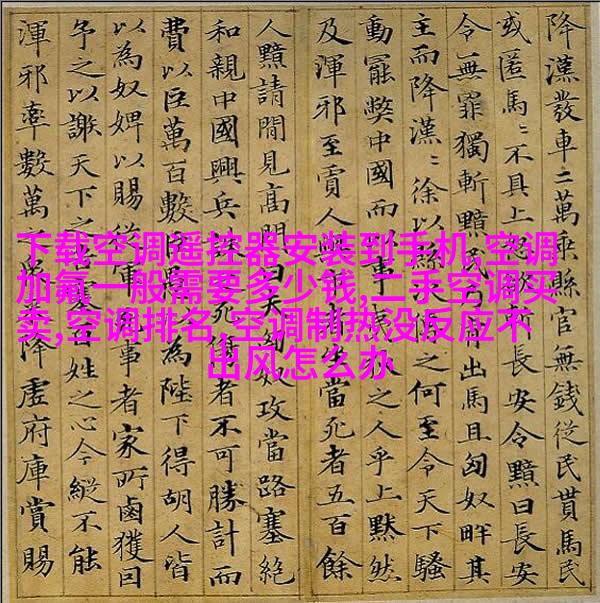 下载空调遥控器安装到手机,空调
加氟一般需要多少钱,二手空调买
卖,空调排名,空调制热没反应不
出风怎么办
降漢發車二萬乘縣官無錢從民貰馬民
或匿馬〻不具上長安令黯曰長安
令無罪獨斬黯民出馬且匈奴畔其
主而降漢〻徐以縣之何至令天下騷
動罷獘中國而以事之人乎上黙然
及渾邪至賈人當死者五百餘
人黯請間見高門曰夫匈奴攻當路塞絶
和親中國興兵者不可勝計而
費以巨萬百數臣為陛下得胡人皆
以為奴婢以賜從軍事者家所鹵獲因
予之以謝天下之姓之心今縱不能
渾邪率數萬之降虛府庫賞賜